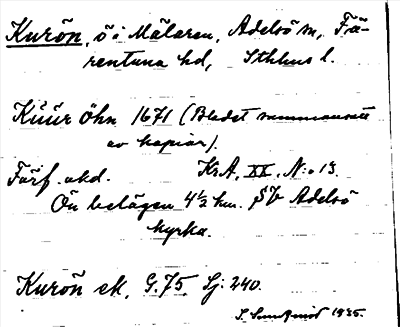 Kurön, ö i Mälaren, Adelsö sn, Fä-
rentuna hd, Sthlms l.
Küür Öhn 1671 (Bladet sammansatt
av kopior).
Förf. okd. Kr.A. XX. N:o 13.
Ön belägen 4 1/2 km. SV Adelsö
kyrka.
Kurön ek. G. 75. Sj: 240.
S. Sundqvist 1935.